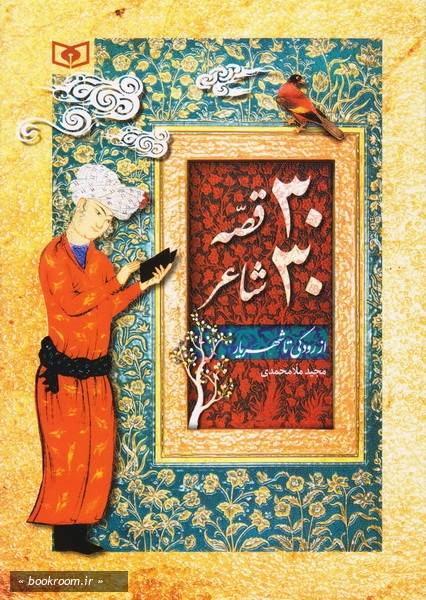 ۳۰ قصّه
۳۰ شاعر
از رودکی تا شهریار
مجید ملامحمدی
« bookroom.ir »